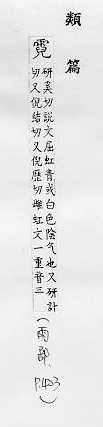 類篇
霓
研奚切說文屈虹青或白色陰气也又研計
切又倪結切又倪歷切雌虹文一重音三
(雨部, P.423)